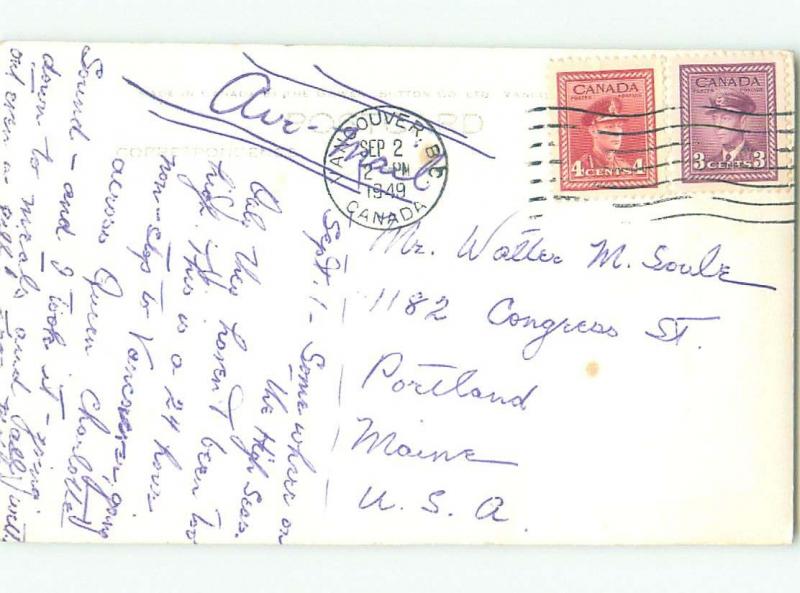 MADE IN CANADA BY THE GOWEN SUTTON CO. LTD. VANCOUVER
POSTCARD
CORRESPONDENCE
Air-Mail
VANCOUVER B.C.
SEP 2
2 PM
1949
CANADA
CANADA
POSTES POSTAGE
4 CENTS 4
CANADA
POSTES POSTAGE
3 CENTS 3
Mr. Walter M. Soule
1182 Congress St.
Portland
Maine
U. S. A.
Sept. 1 - Some where on
the High Seas.
Only they haven't been too
high. This is a 24 hour
non-stop to Vancouver, going
across Queen Charlotte
Sound - and I took it - going
down to meals and all
without even a pill!